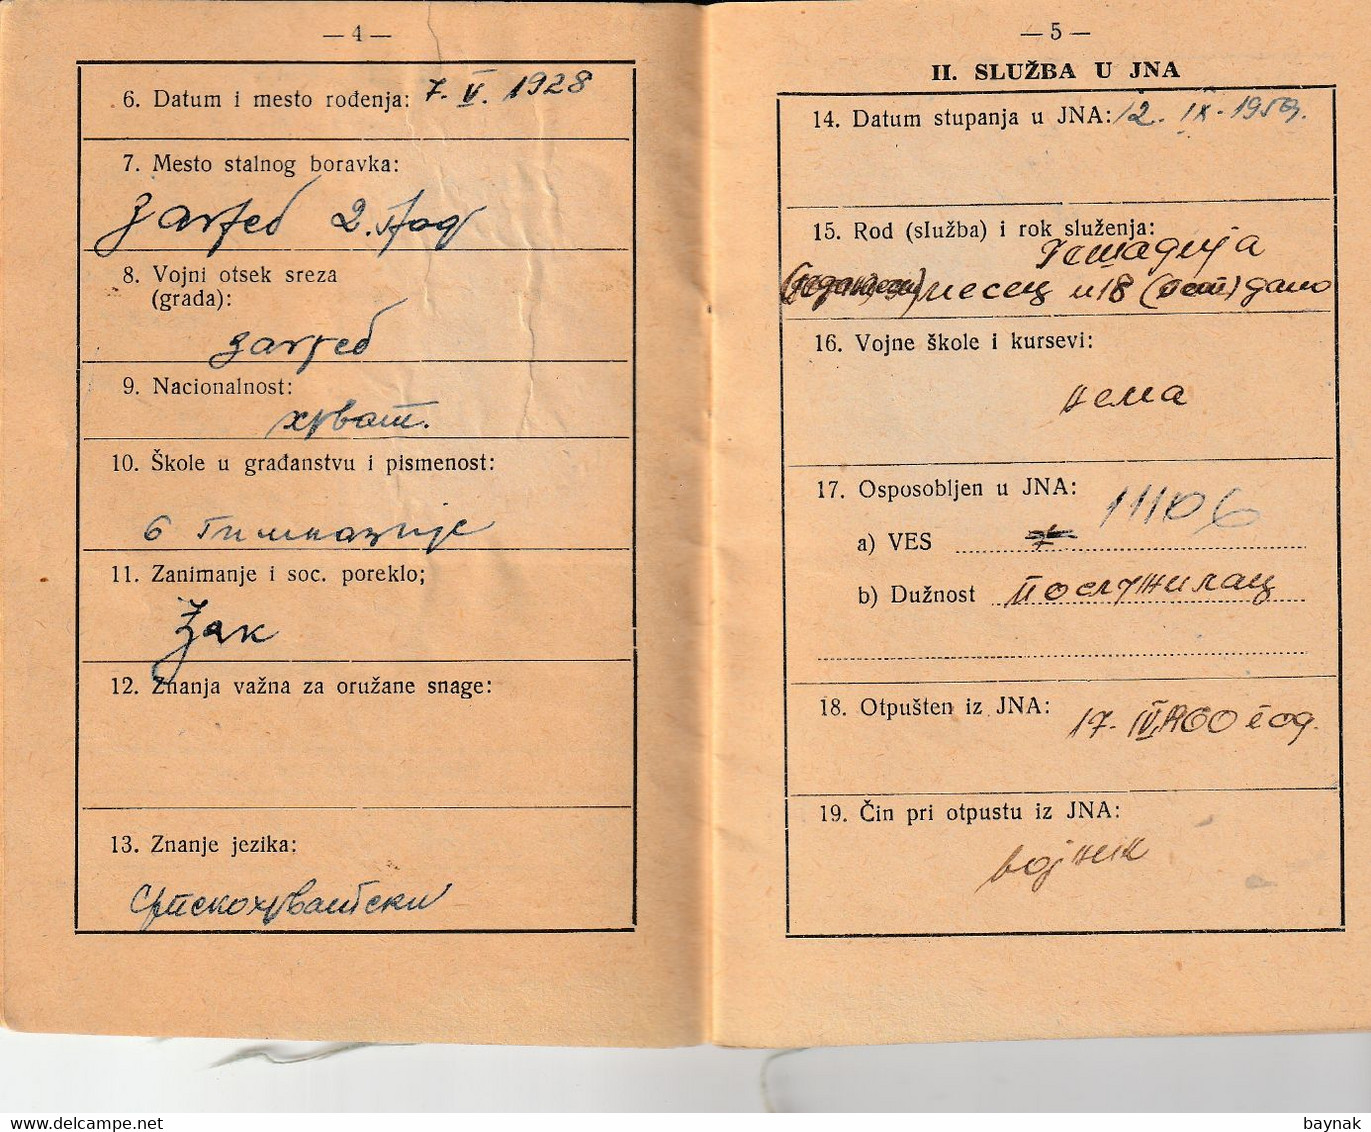 — 4 —
6. Datum i mesto rođenja: 7. V. 1928
7. Mesto stalnog boravka:
Загреб 2.
8. Vojni otsek sreza
(grada):
Загреб
9. Nacionalnost:
хрват.
10. Škole u građanstvu i pismenost:
6 Гимназије
11. Zanimanje i soc. poreklo;
Ђак
12. Znanja važna za oružane snage:
13. Znanje jezika:
Српскохрватски
— 5 —
II. SLUŽBA U JNA
14. Datum stupanja u JNA: 12. IX. 1959.
15. Rod (služba) i rok služenja:
месец и 18 ( )
16. Vojne škole i kursevi:
нема
17. Osposobljen u JNA:
11106
a) VES
b) Dužnost послужилац
18. Otpušten iz JNA:
17. IV. 1960 год.
19. Čin pri otpustu iz JNA:
војник
baynak